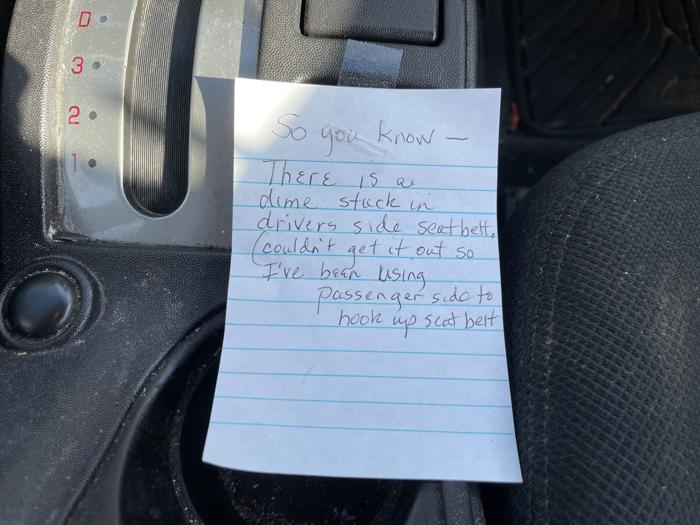 D
3
2
1
So you know —
There is a
dime stuck in
drivers side seatbelt.
Couldn't get it out so
I've been using
passenger side to
hook up seat belt